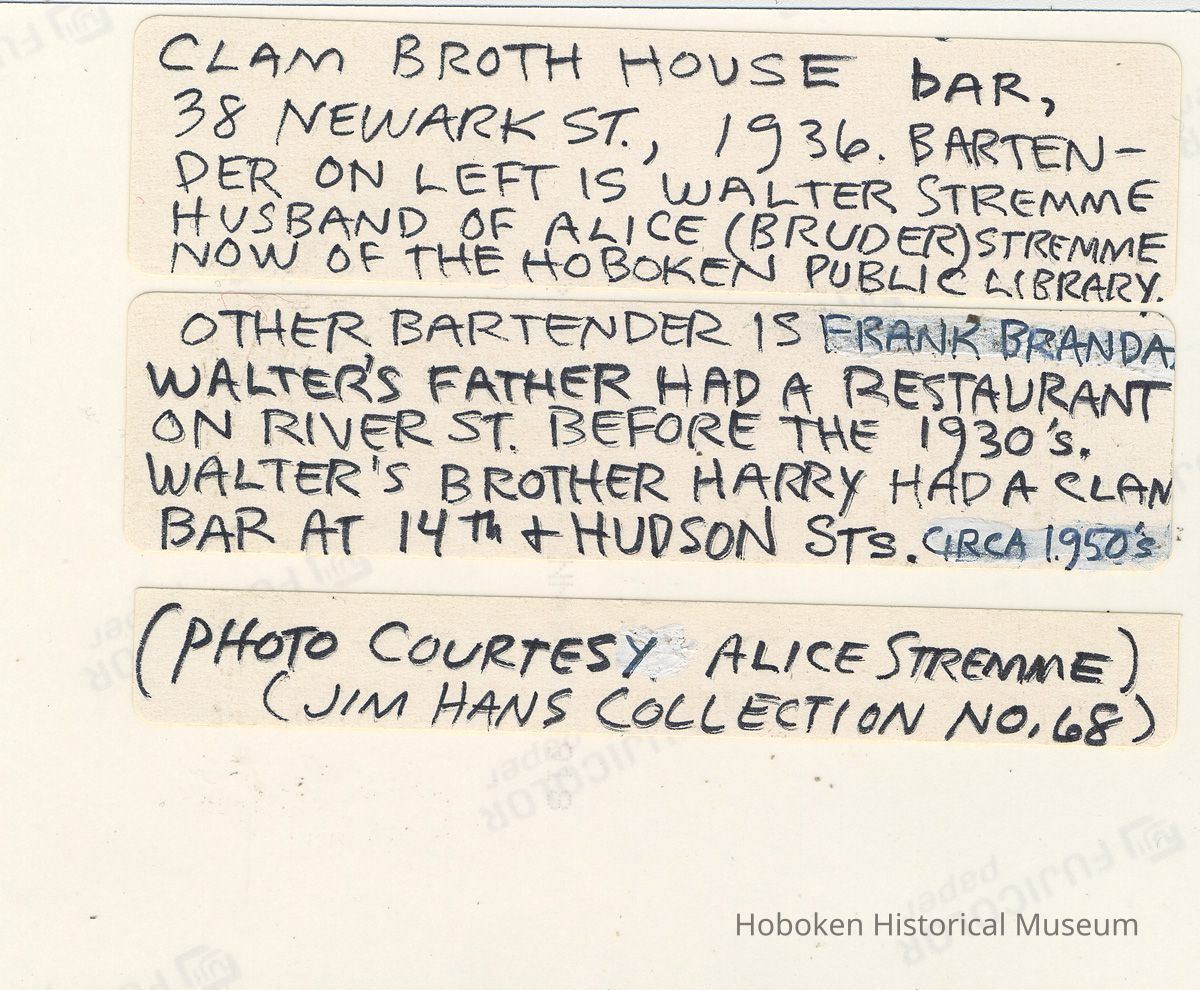 CLAM BROTH HOUSE bAR,
38 NEWARK ST., 1936. BARTEN-
DER ON LEFT IS WALTER STREMME
HUSBAND OF ALICE (BRUDER) STREMME
NOW OF THE HOBOKEN PUBLIC LIBRARY.
OTHER BARTENDER IS FRANK BRANDA.
WALTER'S FATHER HAD A RESTAURANT
ON RIVER ST. BEFORE THE 1930's.
WALTER'S BROTHER HARRY HAD A CLAM
BAR AT 14th + HUDSON STs. CIRCA 1950's
(PHOTO COURTESY ALICE STREMME)
(JIM HANS COLLECTION NO. 68)
FUJICOLOR
paper
FUJICOLOR
paper
Hoboken Historical Museum